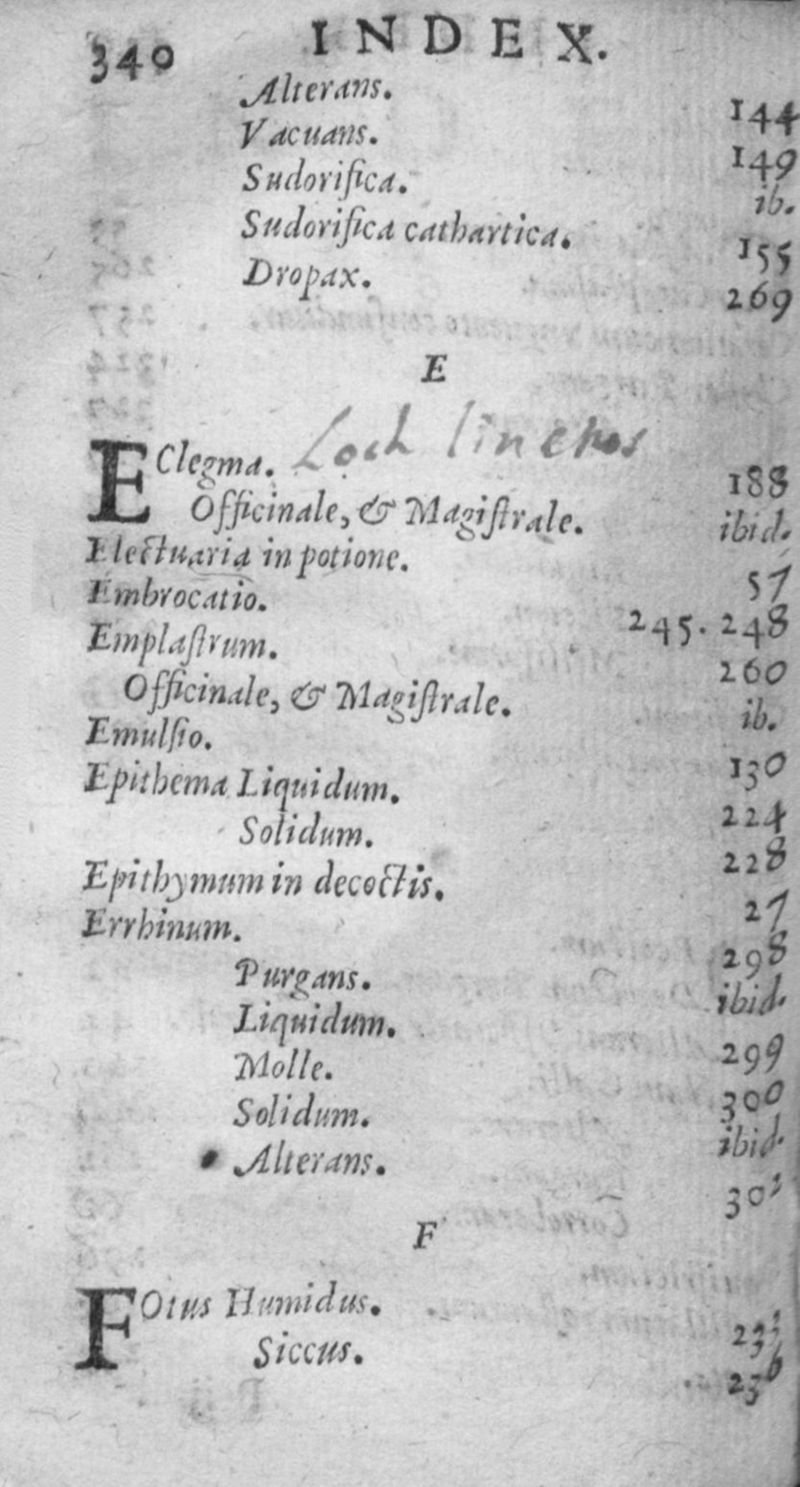 340 INDEX.
Alterans. 144
Vacuans. 149
Sudorifica. ib.
Sudorifica cathartica. 155
Dropax. 269
E
EClegma. Loch linctus 188
Officinale, & Magistrale. ibid.
Electuaria in potione. 57
Embrocatio. 245. 248
Emplastrum. 260
Officinale, & Magistrale. ib.
Emulsio. 130
Epithema Liquidum. 224
Solidum. 228
Epithymum in decoctis. 27
Errhinum. 298
Purgans. ibid.
Liquidum. 299
Molle. 300
Solidum. ibid.
Alterans.
F
FOtus Humidus.
Siccus. 236